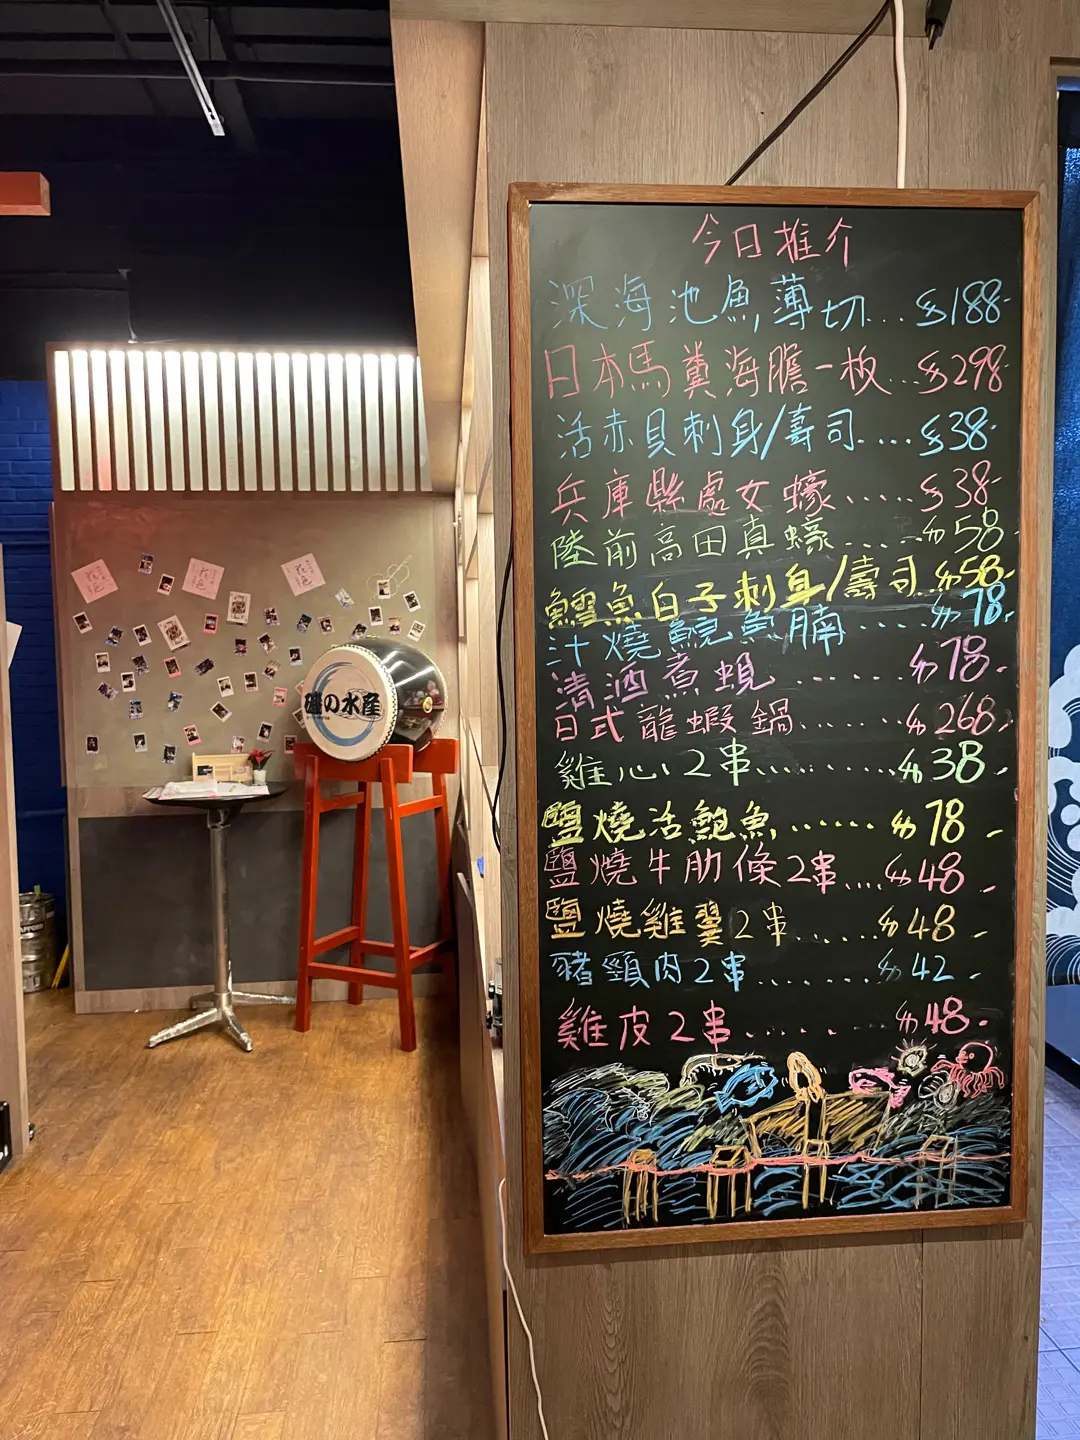 今日推介
深海池魚薄切...$188-
日本馬糞海膽一板...$298-
活赤貝刺身/壽司....$38-
兵庫縣處女蠔.....$38-
陸前高田真蠔......$58-
鱈魚白子刺身/壽司.$58-
汁燒鯇魚腩....$78-
清酒煮蜆......$78-
日式龍蝦鍋......$268-
雞心2串.........$38-
鹽燒活鮑魚......$78-
鹽燒牛肋條2串....$48-
鹽燒雞翼2串......$48-
豬頸肉2串.......$42-
雞皮2串.......$48-
磯の水産